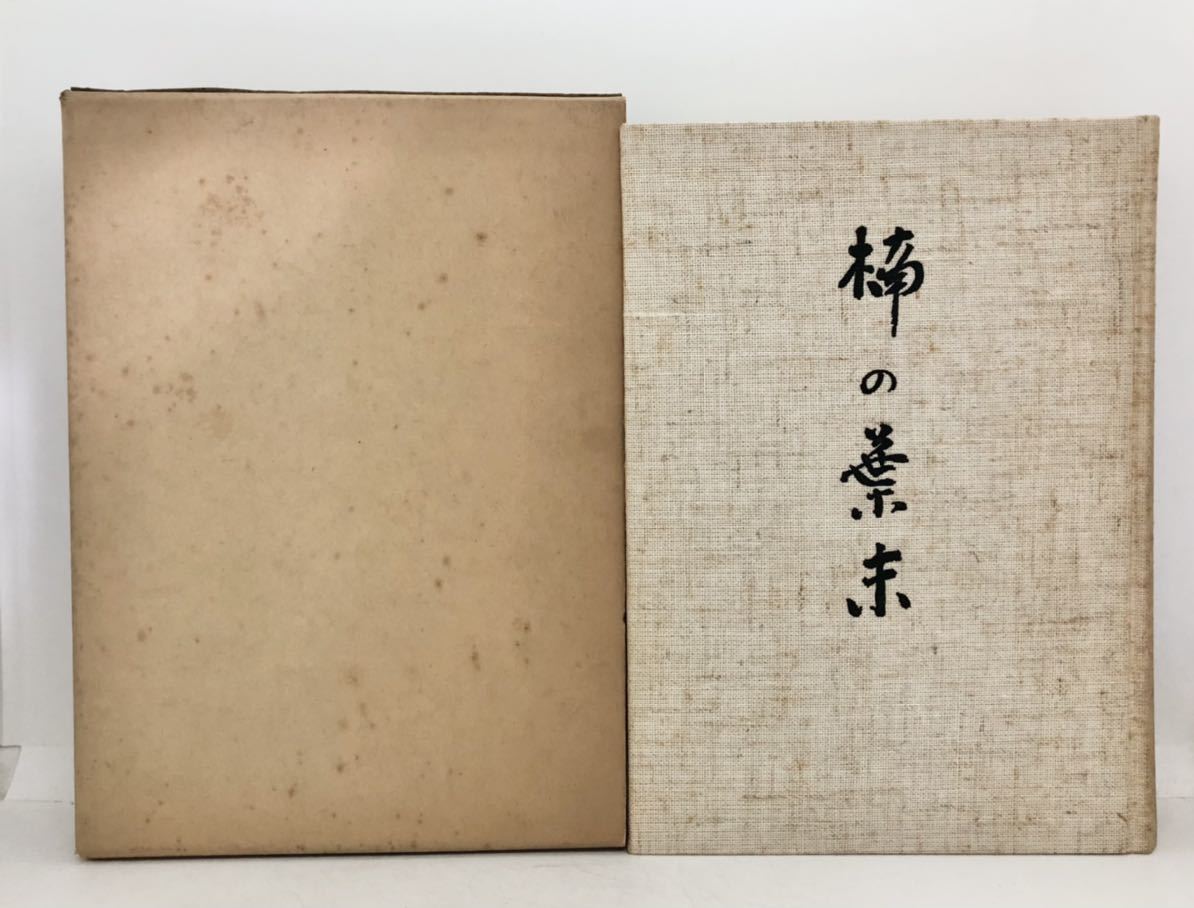 楠の葉末